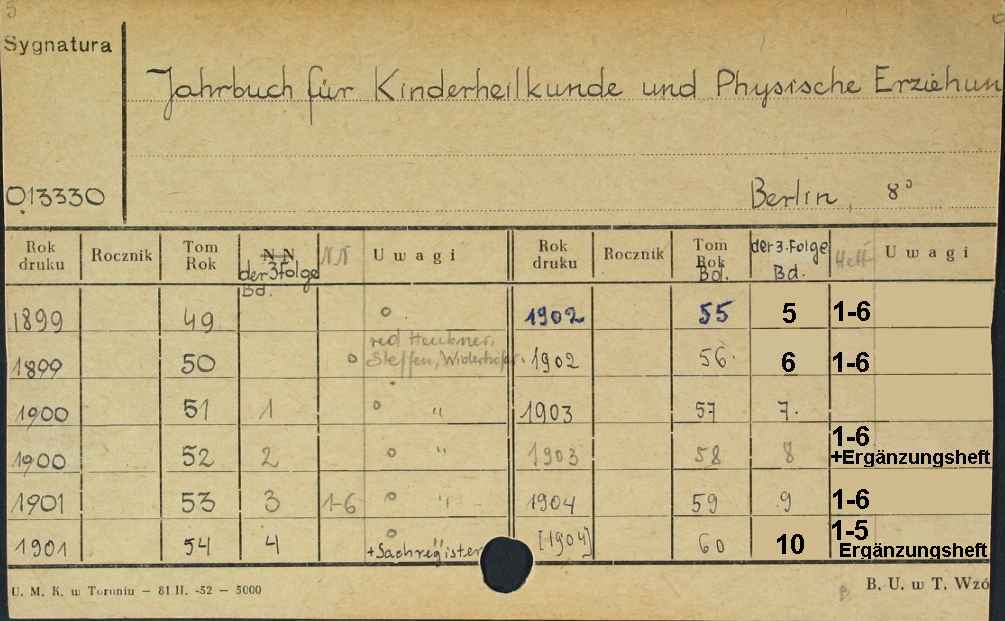 Sygnatura
Jahrbuch für Kinderheilkunde und Physische Erziehun
013330
Berlin, 8°
Rok druku Rocznik Tom Rok N N der 3 folge Bd. NN Uwagi Rok druku Rocznik Tom Rok Bd. der 3. Folge Bd. Heft Uwagi
1899 49 1902 55 5 1-6
1899 50 red Heubner, Steffen, Widerhofer. 1902 56. 6 1-6
1900 51 1 " 1903 57 7.
1900 52 2 " 1903 58 8 1-6 +Ergänzungsheft
1901 53 3 1-6 " 1904 59 9 1-6
1901 54 4 " +Sachregister [1904] 60 10 1-5 Ergänzungsheft
U. M. K. w Toruniu — 81 II. -52 — 5000
B. U. w T. Wzó